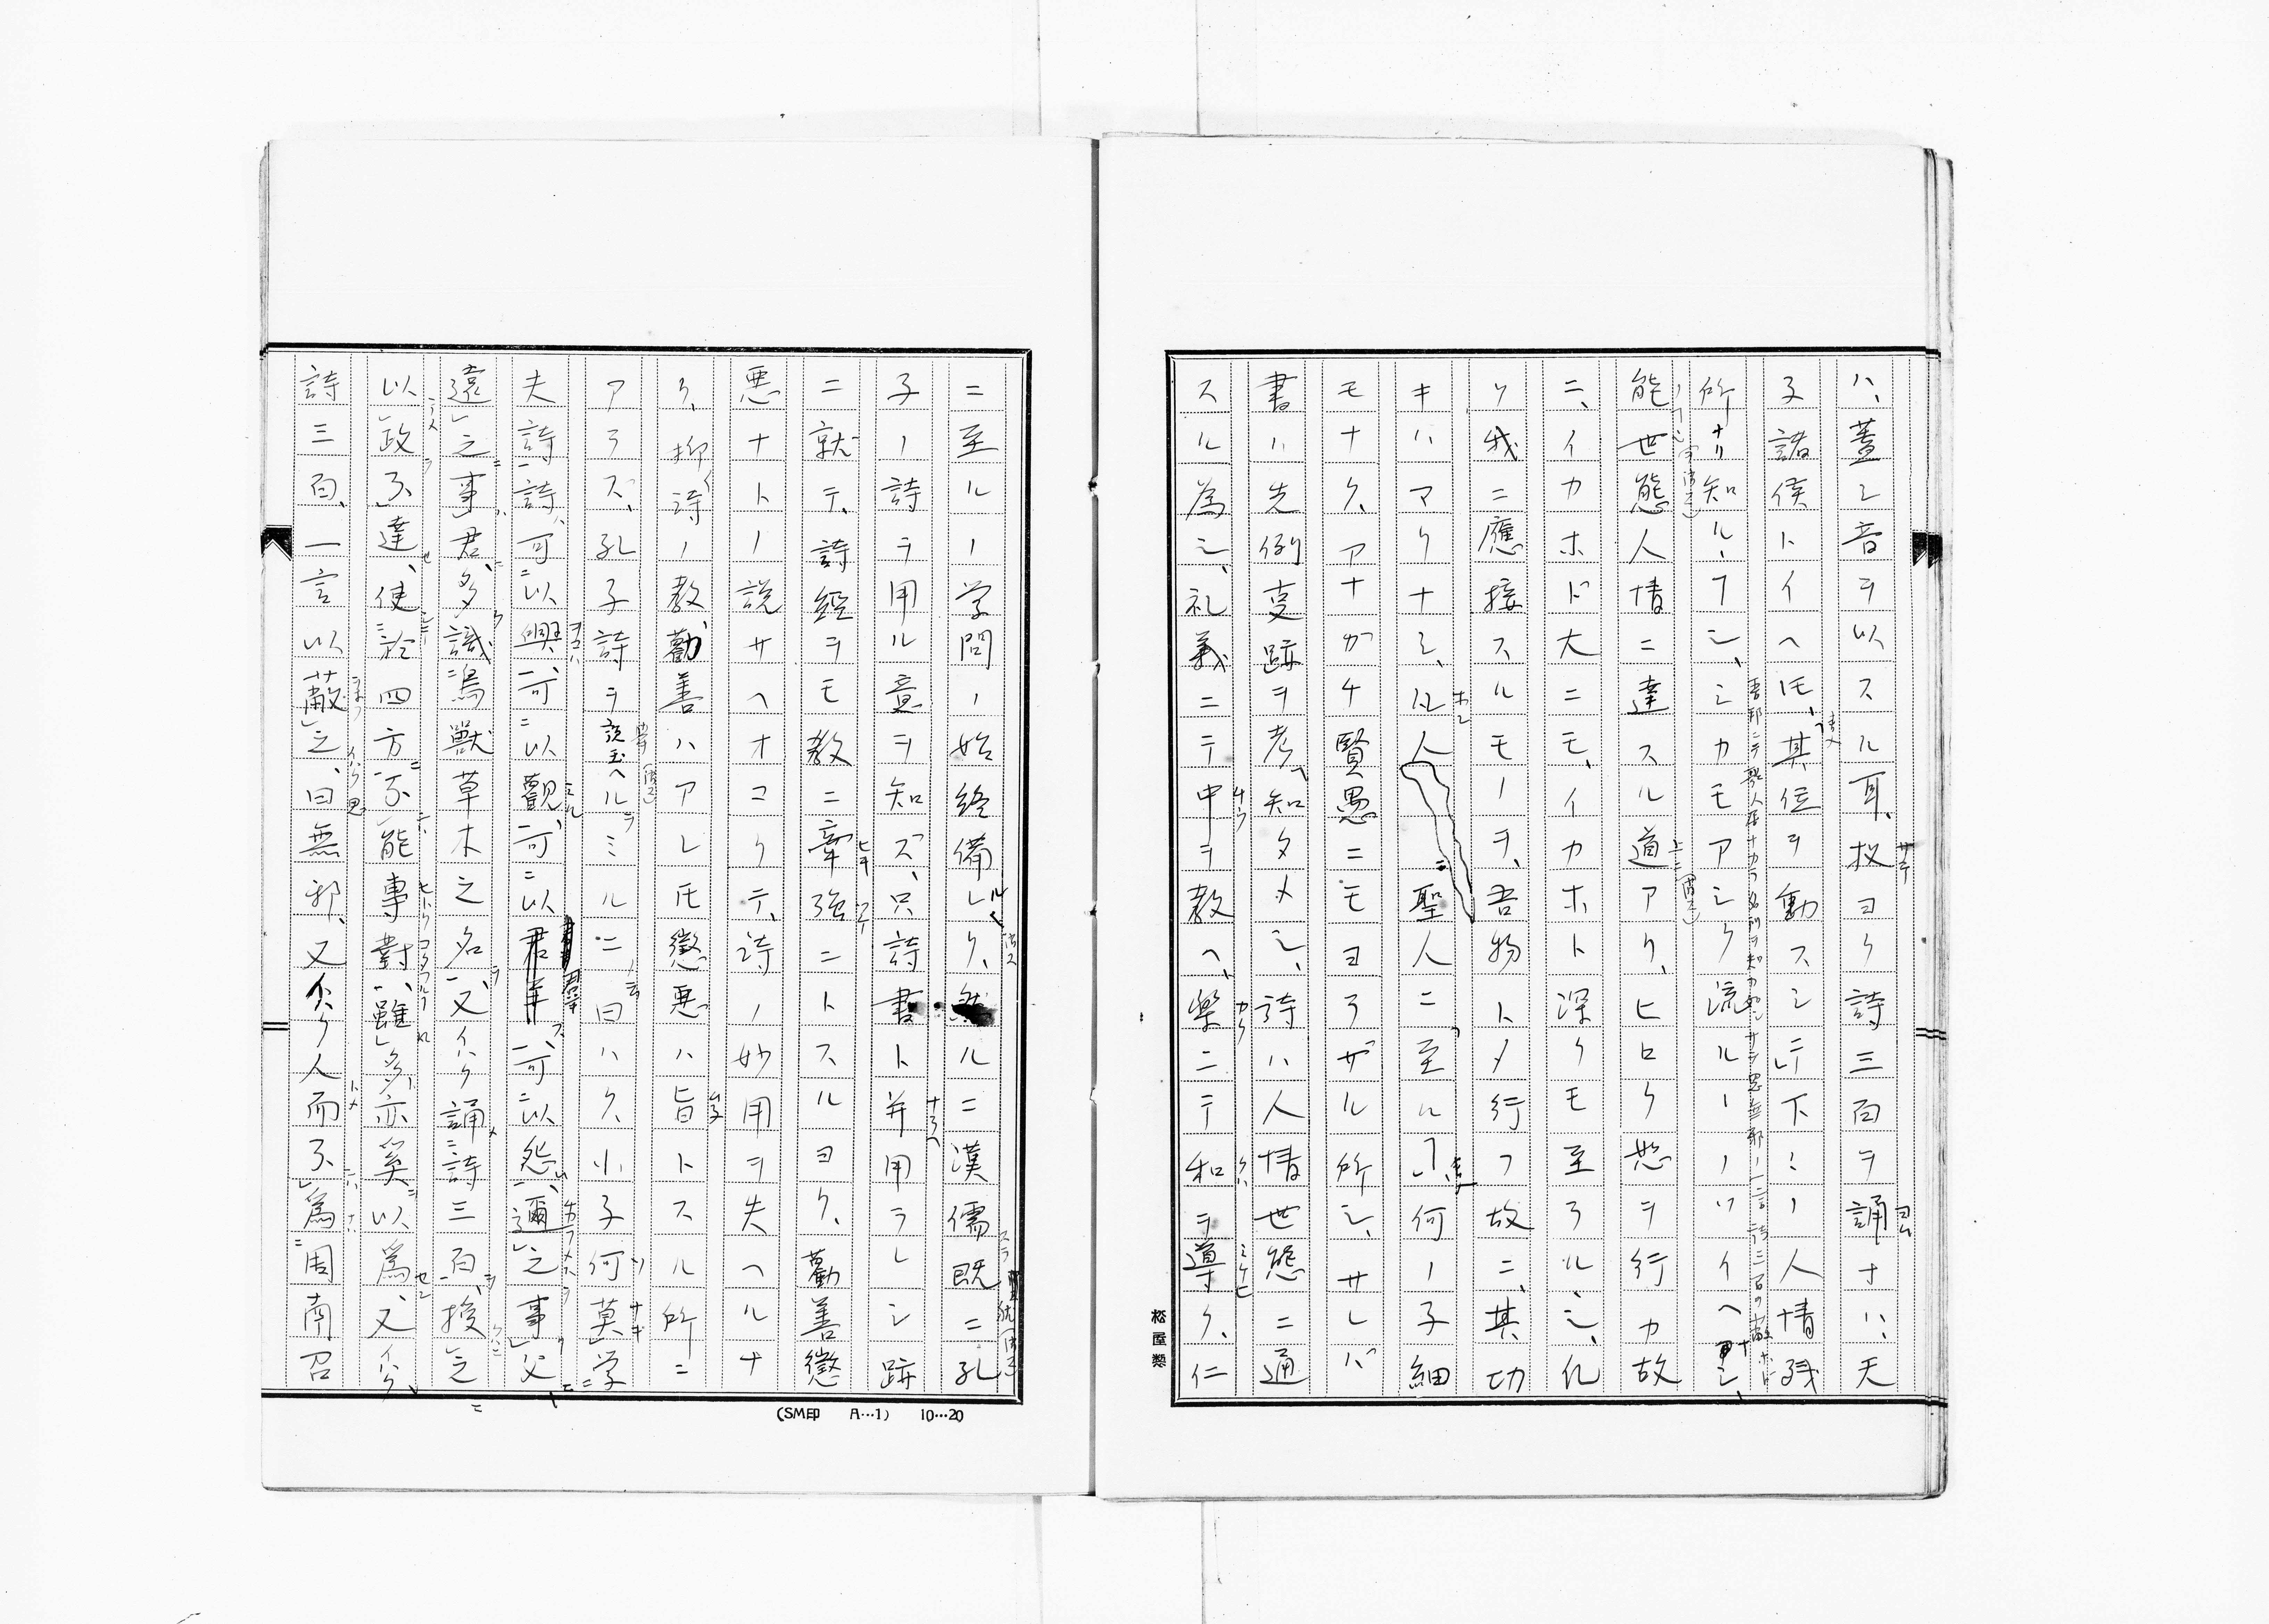 ハ、蓋シ音ヲ以スル耳、扨ヨク詩三百ヲ誦ナハ、天
子諸侯トイヘ𪜈、其位ヲ動スシテ下ミノ人情残
所ナリ知ル、フシ、シカモアシク流ルーノソイヘナシ、
能世態人情ニ達スル道アリ、ヒロク恕ヲ行カ故
ニ、イカホド大ニモ、イカホト深クモ至ラルシ、凡
ソ我ニ應接スルモノヲ、吾物トメ行フ故ニ、其功
キハマリナシ、凡人聖人ニ至ルヿ、何ノ子細
モナク、アナガチ賢愚ニモヨラザル所シ、サレバ
書ハ先例変跡ヲ考ヘ、知タメシ、詩ハ人情世態ニ通
スル為シ、礼義ニテ中ヲ教ヘ、楽ニテ和ヲ導ク、仁
松屋製
ニ至ルノ学問ノ始終備レリ、然ルニ漢儒既ニ孔
子ノ詩ヲ用ル意ヲ知ズ、只詩書ト并用ラレシ跡
ニ就テ、詩經ヲモ教ニ牽強ニトスルヨリ、勸善懲
悪ナトノ説サヘオコリテ、詩ノ妙用ヲ失ヘルナ
リ、抑詩ノ教、勸善ハアレ𪜈懲悪ハ旨トスル所ニ
アラズ、孔子詩ヲ説玉ヘルヲミルニ、曰ハク、小子何莫学
夫詩、詩可以興、可以觀、可以羣、可以怨、邇之事父、
遠之事君、多識鳥獣草木之名、又仝ク誦詩三百、授之
以政不達、使於四方不能專對、雖多亦奚以爲、又仝ク、
詩三百、一言以蔽之、曰無邪、又仝ク人而不爲周南召
(SM印 A…1) 10…20